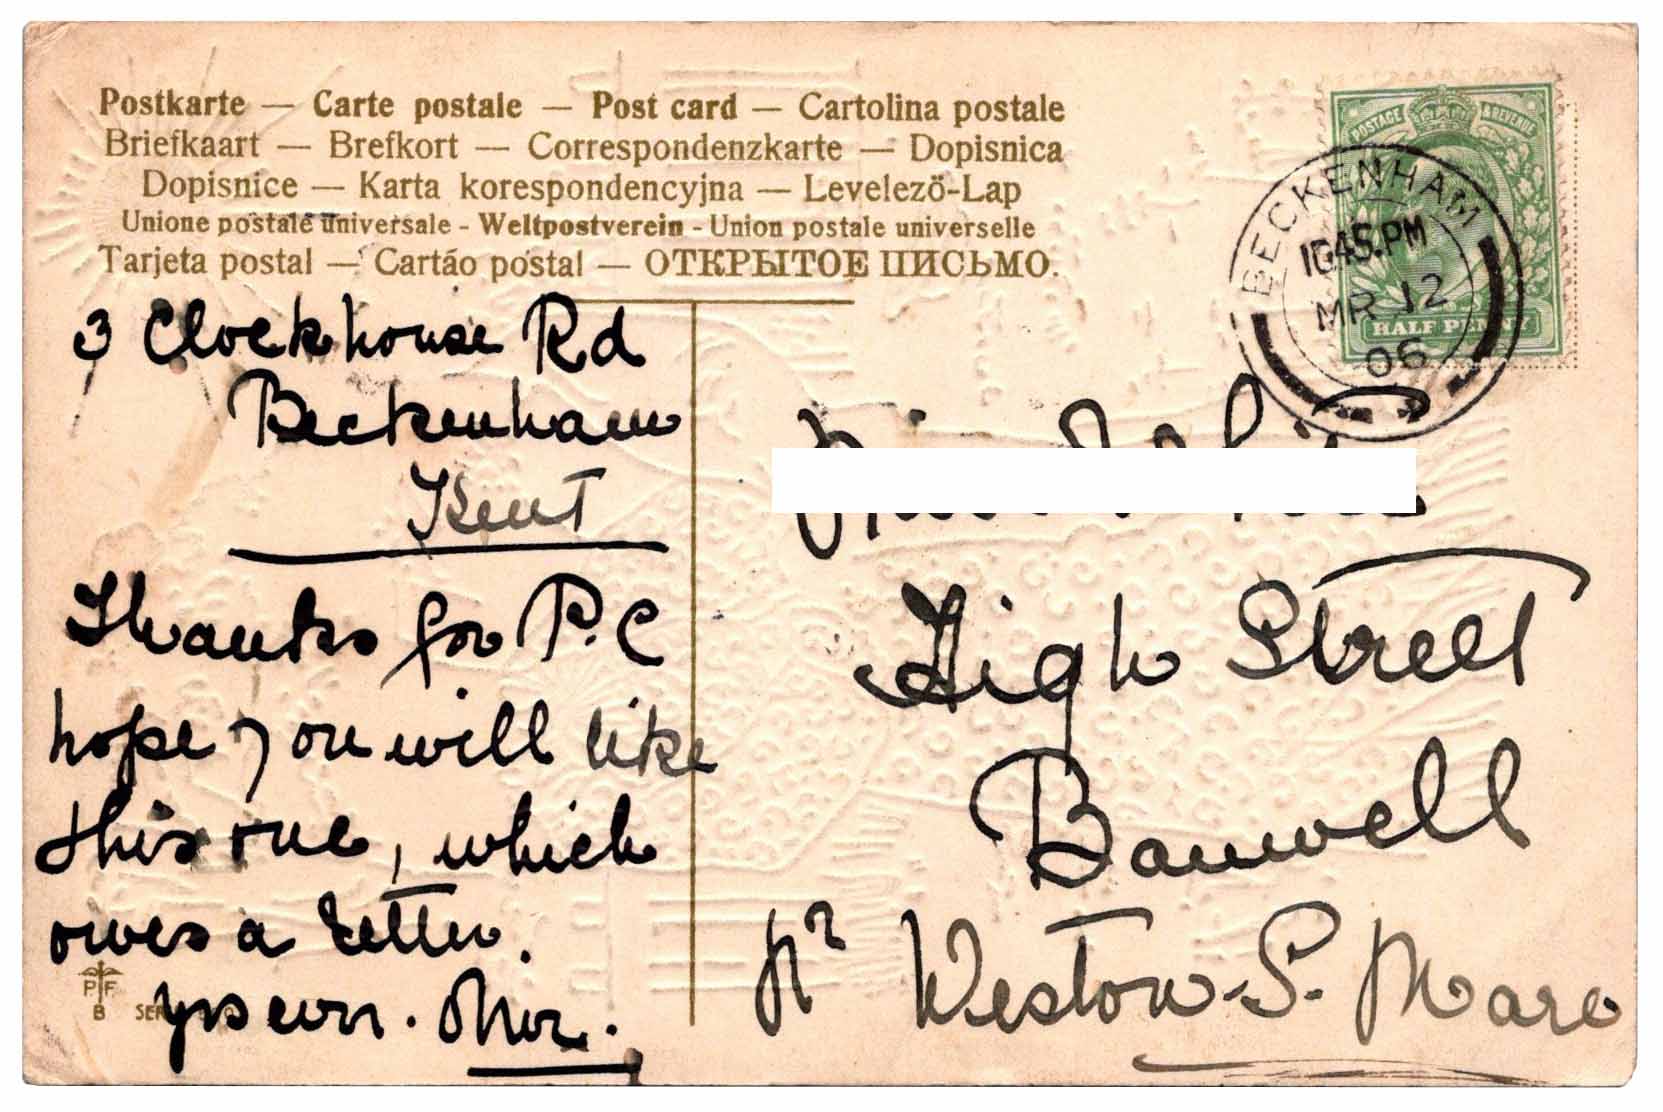 Postkarte — Carte postale — Post card — Cartolina postale
Briefkaart — Brefkort — Correspondenzkarte — Dopisnica
Dopisnice — Karta korespondencyjna — Levelező-Lap
Unione postale universale - Weltpostverein - Union postale universelle
Tarjeta postal — Cartão postal — ОТКРЫТОЕ ПИСЬМО.
POSTAGE & REVENUE
HALF PENNY
BECKENHAM
1045.PM
MR 12
06
3 Clockhouse Rd
Beckenham
Kent
Thanks for P.C
hope you will like
this one, which
owes a letter.
Yrs ever.
PF
B SER
High Street
Banwell
Nr Weston-S-Mare